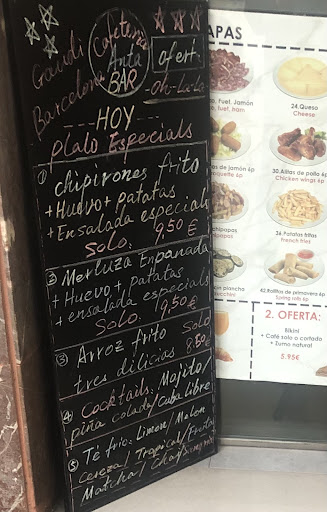 Gaudi
Barcelona
Cafeteria
Anta
BAR
ofert
oh-Lala
---HOY---
plalo Especials
① chipirones frito
+ Huevo + patatas
+ Ensalada especials
Solo: 9,50 €
② Merluza Empanada
+ Huevo + patatas
+ ensalada especials
Solo. 9,50 €
③ Arroz frito Solo
tres delicias 8.50 €
④ Cocktails: Mojito/
piña colada/Cuba libre
⑤ Té frio: Limon/Melon
Cereza/Tropical/Frutas
Matcha/Chai/
APAS
, Fuet, Jamón
o, fuet, ham
24.Queso
Cheese
s de jamón 6p
oquette 6p
30.Alitas de pollo 6p
Chicken wings 6p
hipapas
36.Patatas fritas
French fries
n plancha
ucchini
42.Rollitos de primavera 6p
Spring rolls 6p
2. OFERTA:
Bikini
+ Café solo o cortado
+ Zumo natural
5.95€